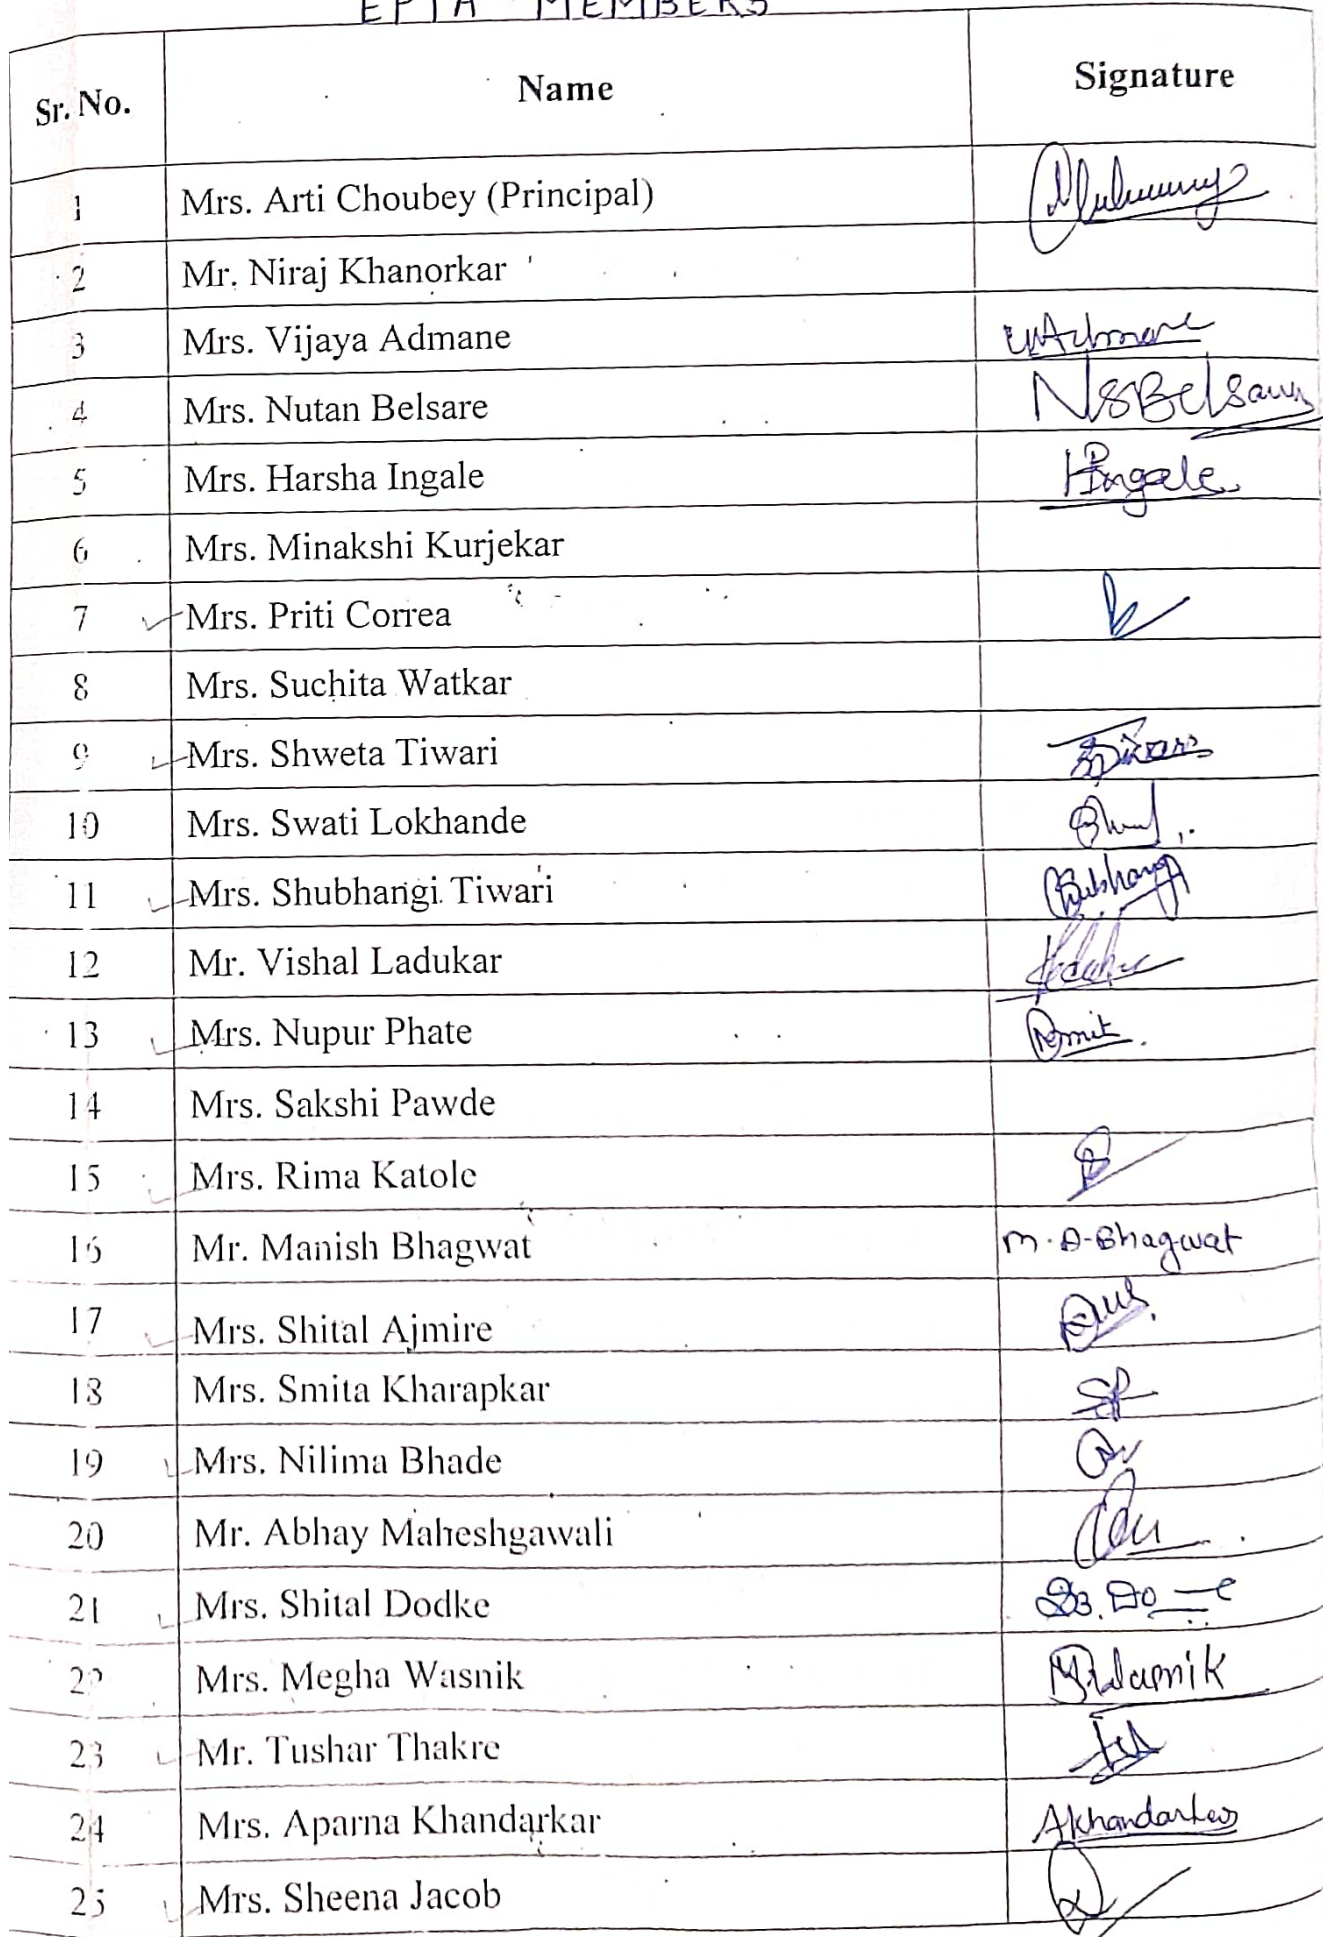 EPTA MEMBERS
Sr. No. Name Signature
1 Mrs. Arti Choubey (Principal)
2 Mr. Niraj Khanorkar
3 Mrs. Vijaya Admane
4 Mrs. Nutan Belsare NSBelsare
5 Mrs. Harsha Ingale HIngale
6 Mrs. Minakshi Kurjekar
7 Mrs. Priti Correa
8 Mrs. Suchita Watkar
9 Mrs. Shweta Tiwari
10 Mrs. Swati Lokhande
11 Mrs. Shubhangi Tiwari
12 Mr. Vishal Ladukar
13 Mrs. Nupur Phate
14 Mrs. Sakshi Pawde
15 Mrs. Rima Katole
16 Mr. Manish Bhagwat M.A-Bhagwat
17 Mrs. Shital Ajmire
18 Mrs. Smita Kharapkar
19 Mrs. Nilima Bhade
20 Mr. Abhay Maheshgawali
21 Mrs. Shital Dodke
22 Mrs. Megha Wasnik
23 Mr. Tushar Thakre
24 Mrs. Aparna Khandarkar AKhandarkar
25 Mrs. Sheena Jacob